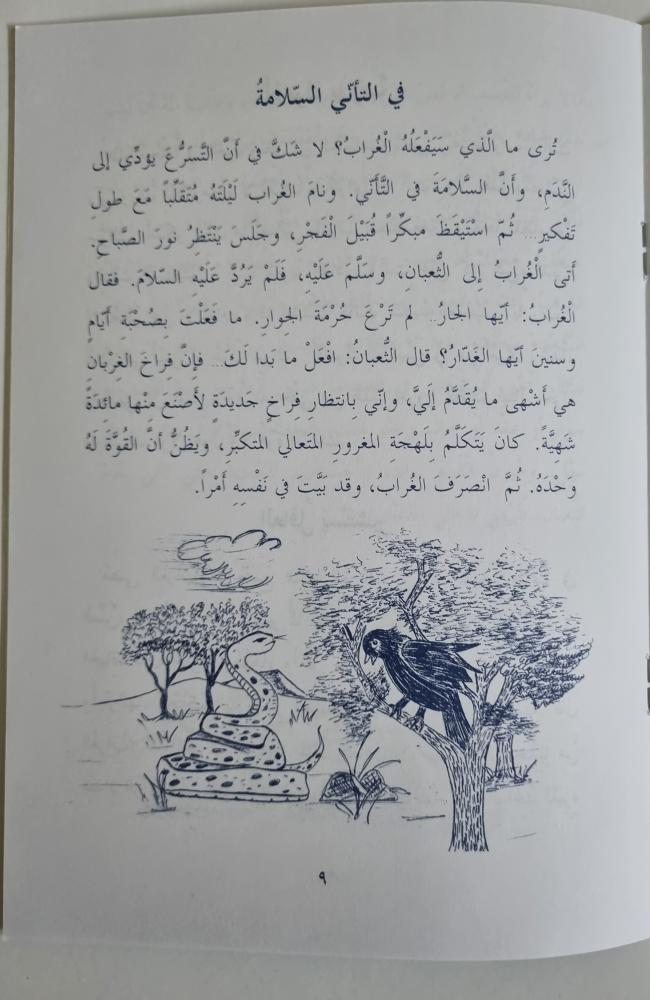 في التأنّي السّلامةُ
تُرى ما الَّذي سَيَفْعَلُهُ الْغُرابُ؟ لا شَكَّ في أَنَّ التَّسَرُّعَ يؤدِّي إلى
النَّدَمِ، وأَنَّ السَّلامَةَ في التَّأَنّي. ونامَ الغُراب لَيْلَتَهُ مُتَقَلِّباً مَعَ طولِ
تَفْكيرٍ... ثُمّ اسْتَيْقَظَ مبكِّراً قُبَيْلَ الْفَجْرِ، وجَلَسَ يَنْتَظِرُ نورَ الصَّباحِ.
أَتى الْغُرابُ إلى الثُّعبانِ، وسَلَّمَ عَلَيْهِ، فَلَمْ يَرُدَّ عَلَيْهِ السّلامَ. فقال
الْغُرابُ: أيّها الجارُ.. لم تَرْعَ حُرْمَةَ الجِوارِ. ما فَعَلْتَ بِصُحْبَةِ أَيّامٍ
وسنينَ أيّها الغَدّارُ؟ قال الثُّعبانُ: افْعَلْ ما بَدا لَكَ... فإنَّ فِراخَ الغِرْبانِ
هي أَشْهى ما يُقَدَّمُ إلَيَّ، وإنّي بِانتظارِ فِراخٍ جَديدَةٍ لأَصْنَعَ مِنْها مائِدَةً
شَهِيَّةً. كانَ يَتَكَلَّمُ بِلَهْجَةِ المغرورِ المتَعالي المتكبِّر، ويَظُنُّ أنَّ القُوَّةَ لَهُ
وَحْدَهُ. ثُمَّ انْصَرَفَ الغُرابُ، وقد بَيَّتَ في نَفْسِهِ أَمْراً.
٩